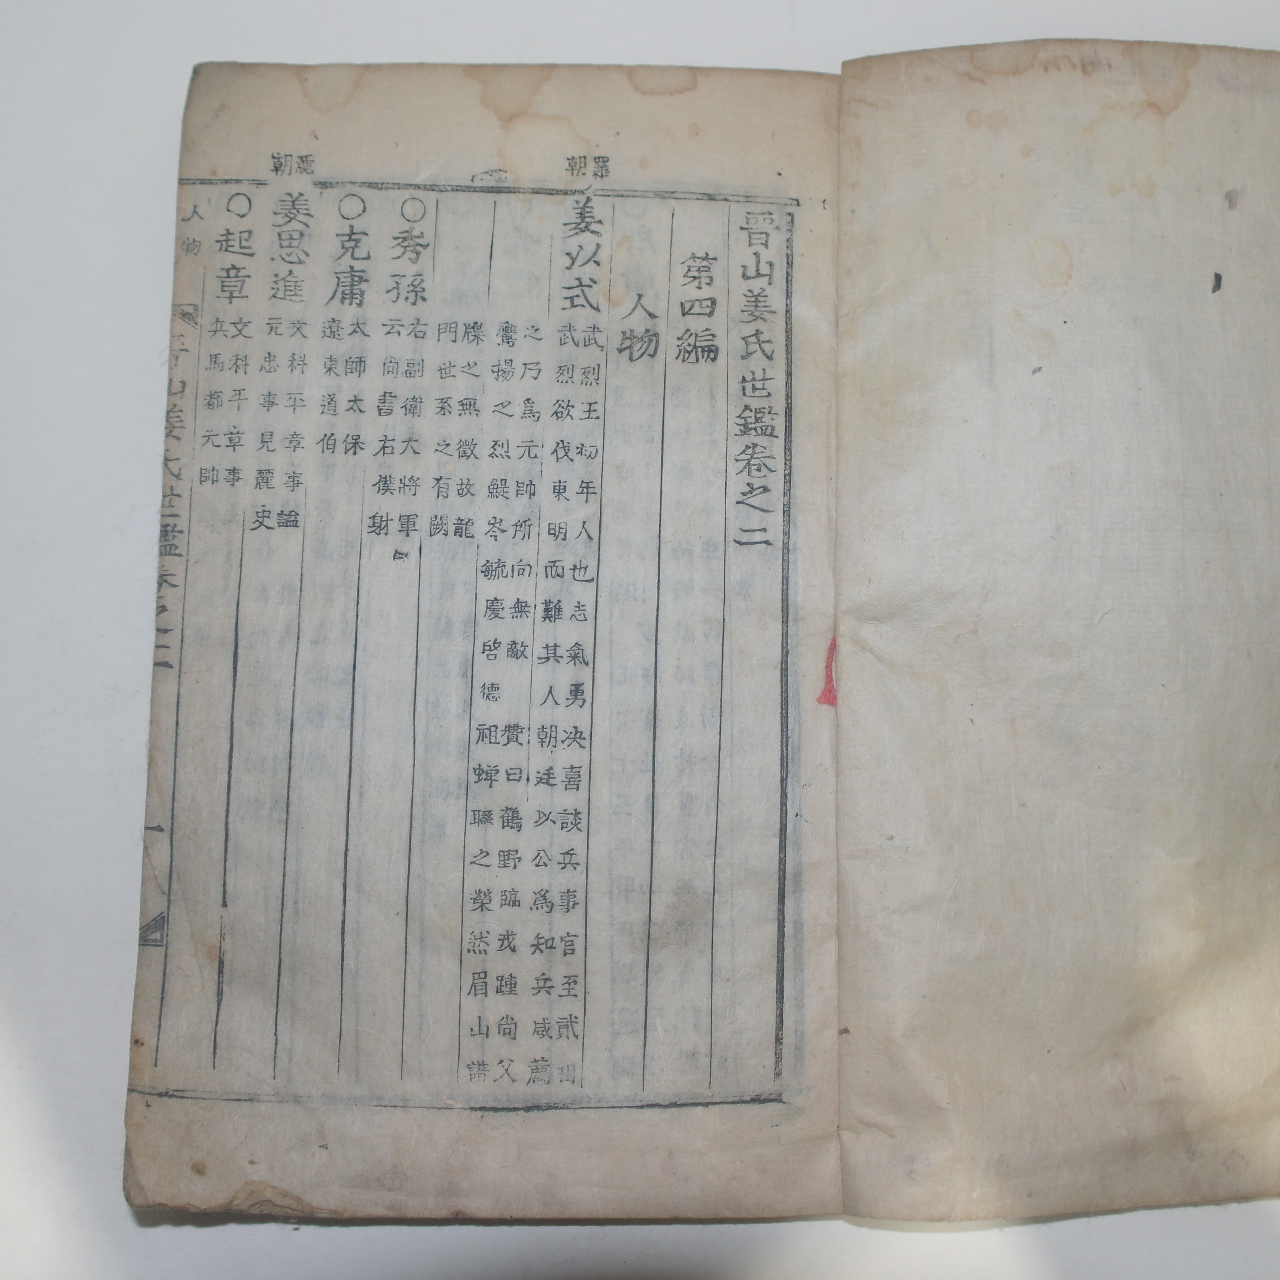 晉山姜氏世鑑卷之二
第四編
人物
羅朝
姜以式
武烈王初年人也志氣勇决喜談兵事官至貳相
武烈欲伐東明而難其人朝廷以公爲知兵咸薦
之乃爲元帥所向無敵 贊曰鶴野臨戎踵尙父
鷹揚之烈鯷岑毓慶啓德祖蟬聯之榮然眉山譜
牒之無徵故龍
門世系之有闕
○秀孫
右副衛大將軍
云尙書右僕射
○克庸
太師太保
遼東道伯
麗朝
姜思進
文科平章事謚
元忠事見麗史
○起章
文科平章事
兵馬都元帥
人物
晉山姜氏世鑑卷之二
一